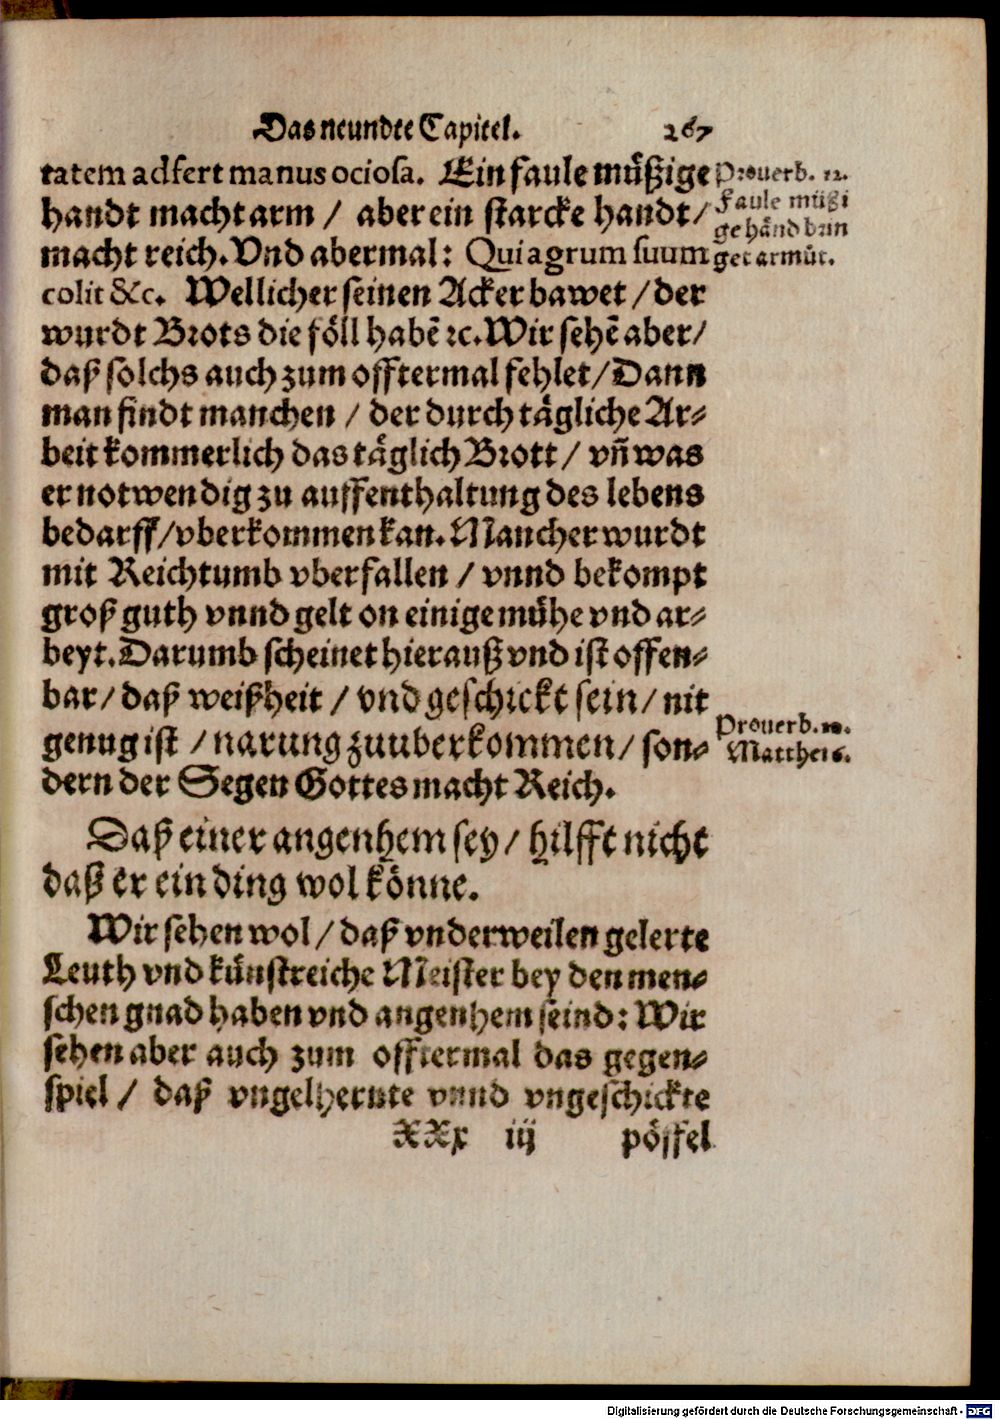 Das neundte Capitel. 267
tatem adfert manus ociosa. Ein faule müßige
handt macht arm / aber ein starcke handt/
macht reich. Vnd abermal: Qui agrum suum
colit &c. Wellicher seinen Acker bawet / der
wurdt Brots die föll habē ꝛc. Wir sehē aber/
daß solchs auch zum offtermal fehlet/ Dann
man findt manchen / der durch tägliche Ar-
beit kommerlich das täglich Brott / vñ was
er notwendig zu auffenthaltung des lebens
bedarff/ vberkommen kan. Mancher wurdt
mit Reichtumb vberfallen / vnnd bekompt
groß guth vnnd gelt on einige mühe vnd ar-
beyt. Darumb scheinet hierauß vnd ist offen-
bar/ daß weißheit / vnd geschickt sein/ nit
genug ist / narung zuuberkommen/ son-
dern der Segen Gottes macht Reich.
Daß einer angenhem sey/ hilfft nicht
daß er ein ding wol könne.
Wir sehen wol / daß vnderweilen gelerte
Leuth vnd künstreiche Meister bey den men-
schen gnad haben vnd angenhem seind: Wir
sehen aber auch zum offtermal das gegen-
spiel / daß vngelhernte vnnd vngeschickte
XXx iij pöffel
Prouerb. 12.
Faule müßi
ge händ brin
get armůt.
Prouerb. 10.
Matthei 6.
Digitalisierung gefördert durch die Deutsche Forschungsgemeinschaft - DFG